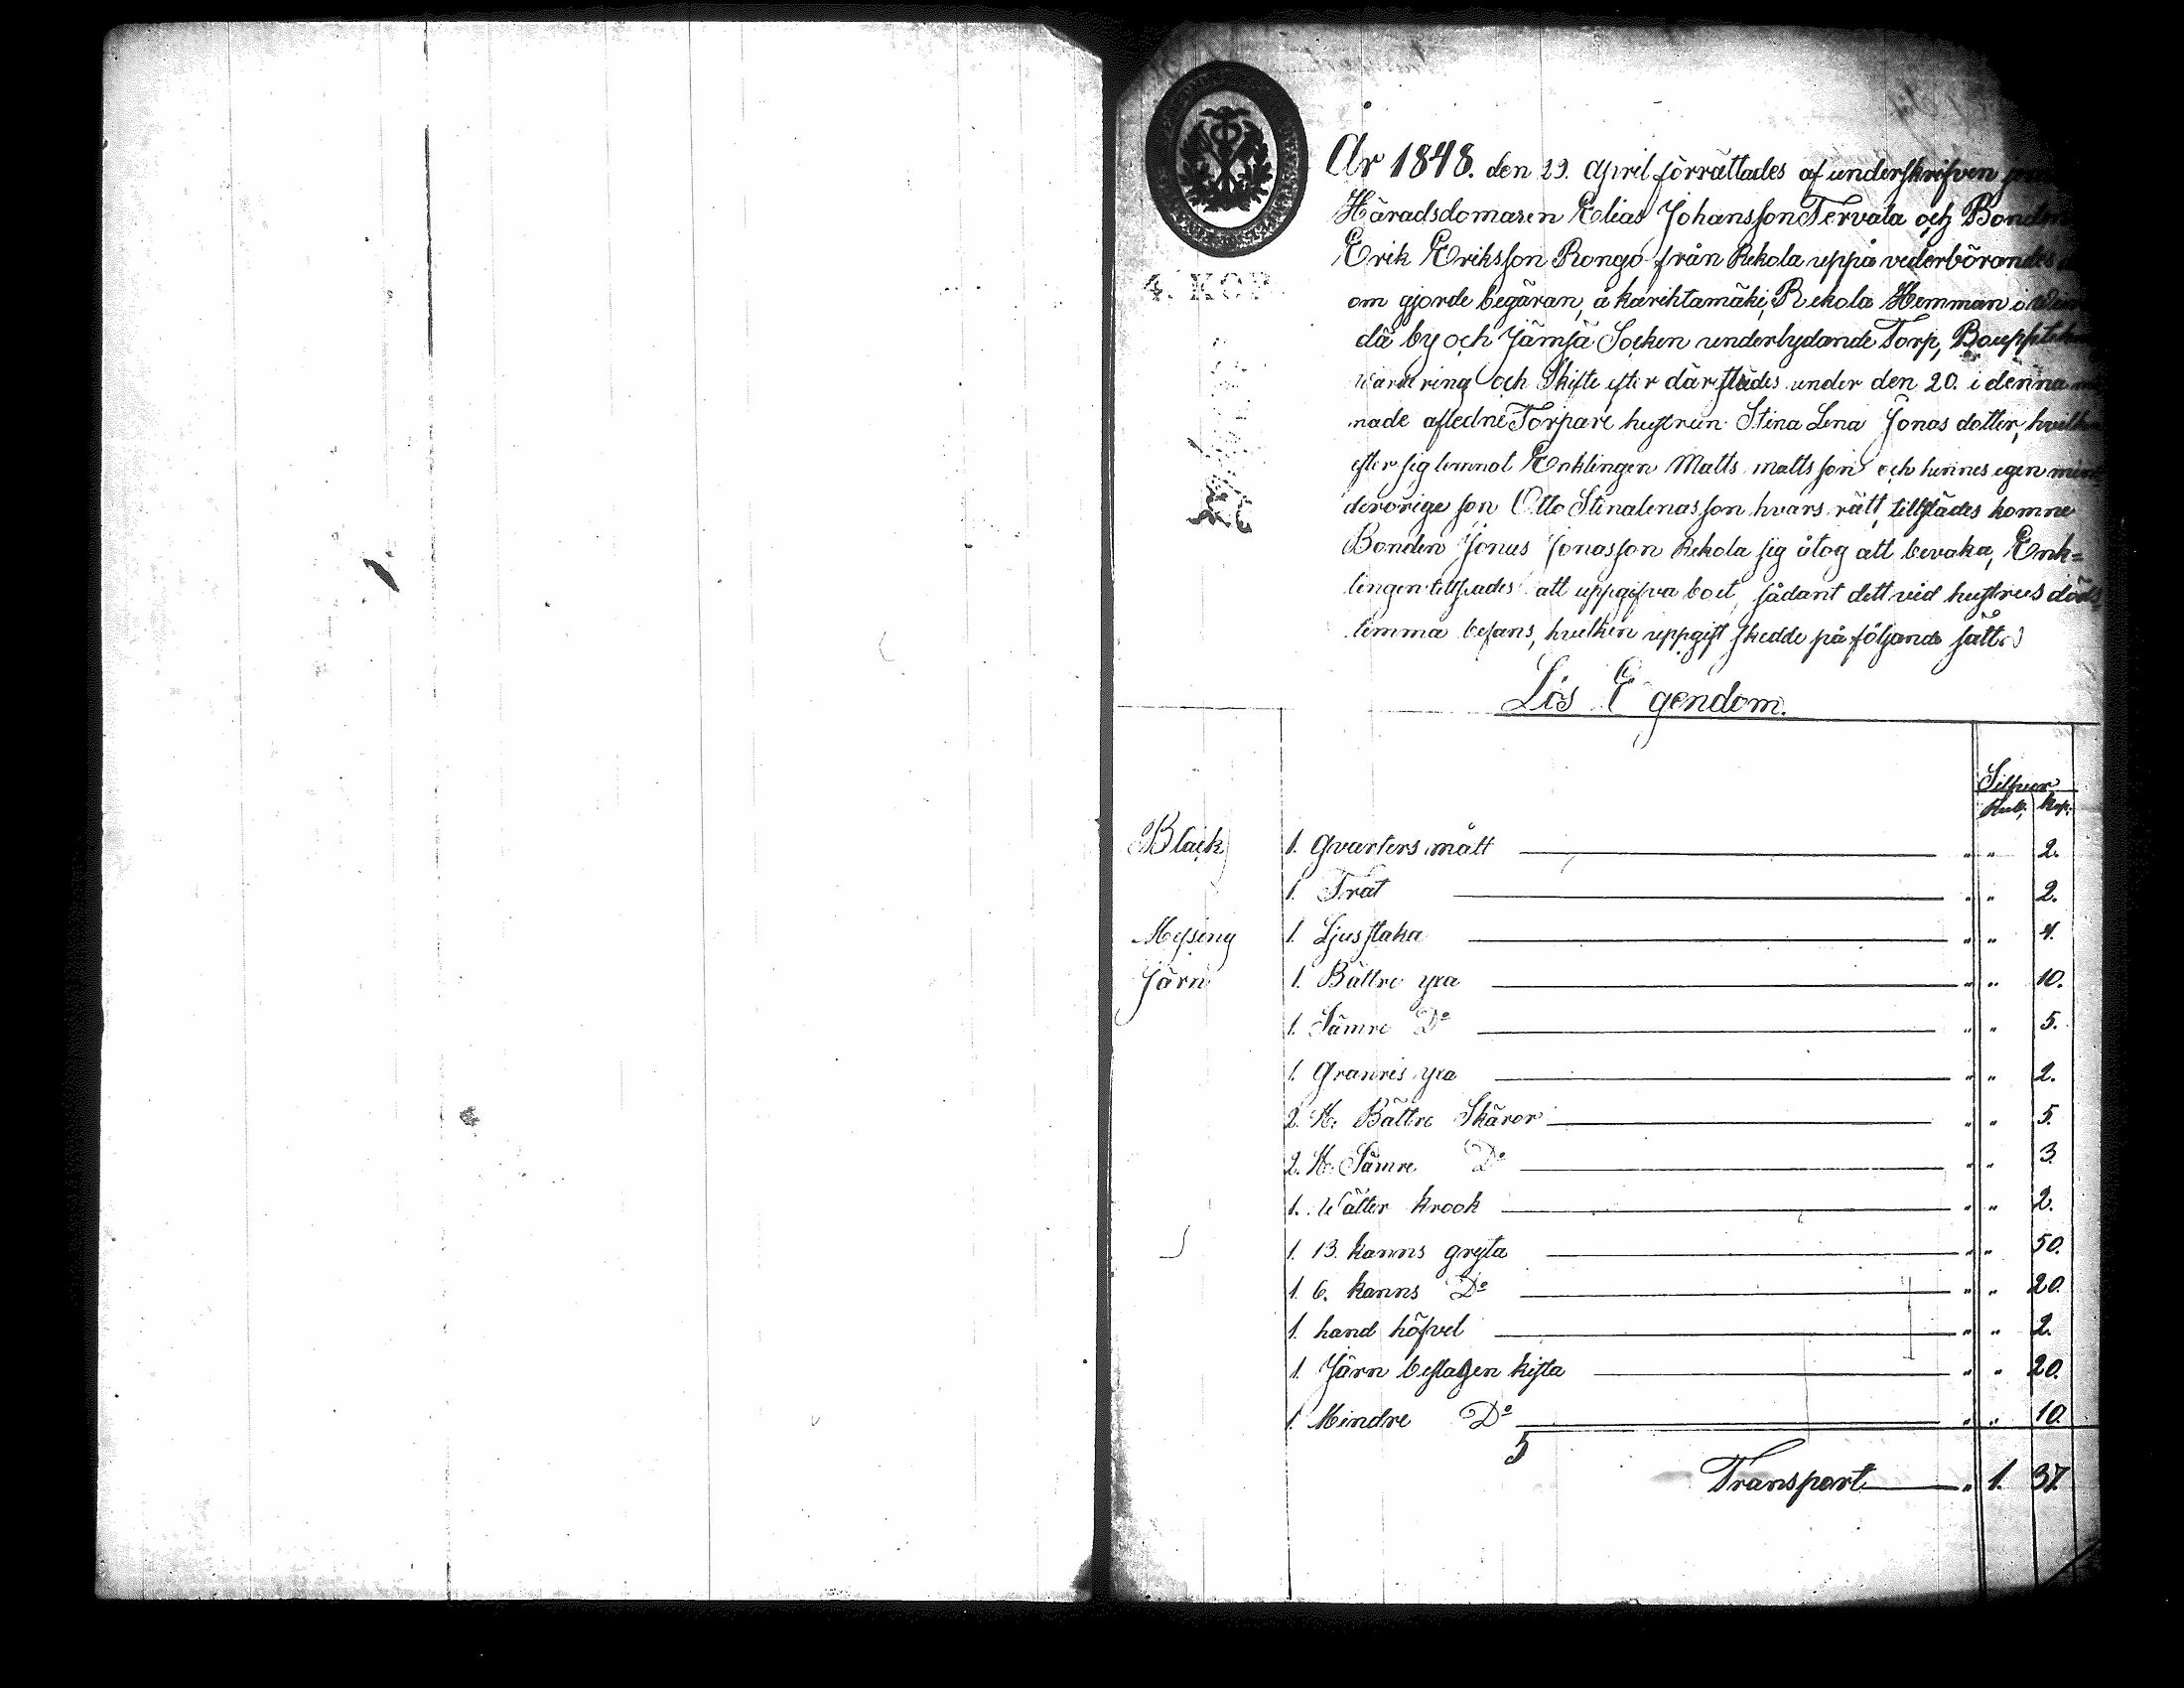 4. KOP.
År 1848. den 29. April förrättades af underskrifven
Häradsdomaren Elias Johansson Tervala och Bonden
Erik Eriksson Rongo från Rekola uppå vederbörandes
om gjorde begäran, å karihtamäki, Rekola Hemman i
dä by och Jämsä Socken underlydande Torp, Bouppteckning
värdering och Skifte efter därstädes under den 20. i denna
nade afledne Torpare hustrun Stina Lena Jonas dotter, hvilken
efter sig lemnat Enklingen Matts matts son och hennes egen min
derårige son Otto Stinalenas son hvars rätt, tillstädes komne
Bonden Jonas Jonasson Rekola sig åtog att bevaka, Enk=
lingen tillsades att uppgifva boet, sådant dett vid hustrus döds
timma befans, hvilken uppgift skedde på följande sätt.
Lös Egendom.
Silfver
Rub. Kop.
Bläck 1. Qvarters mått " " 2.
1. Trat " " 2.
Messing 1. Ljusstaka " " 4.
Järn 1. Bättre yxa " " 10.
1. Sämre Do " " 5.
1. Granris yxa " " 2.
2. St. Bättre Skäror " " 5.
2. St. Sämre Do " " 3.
1. Wätter krook " " 2.
1. 13. kanns gryta " " 50.
1. 6. kanns Do " " 20.
1. hand höfvel " " 2.
1. Järn beslagen kista " " 20.
1. Mindre Do " " 10.
Transport " 1. 37.